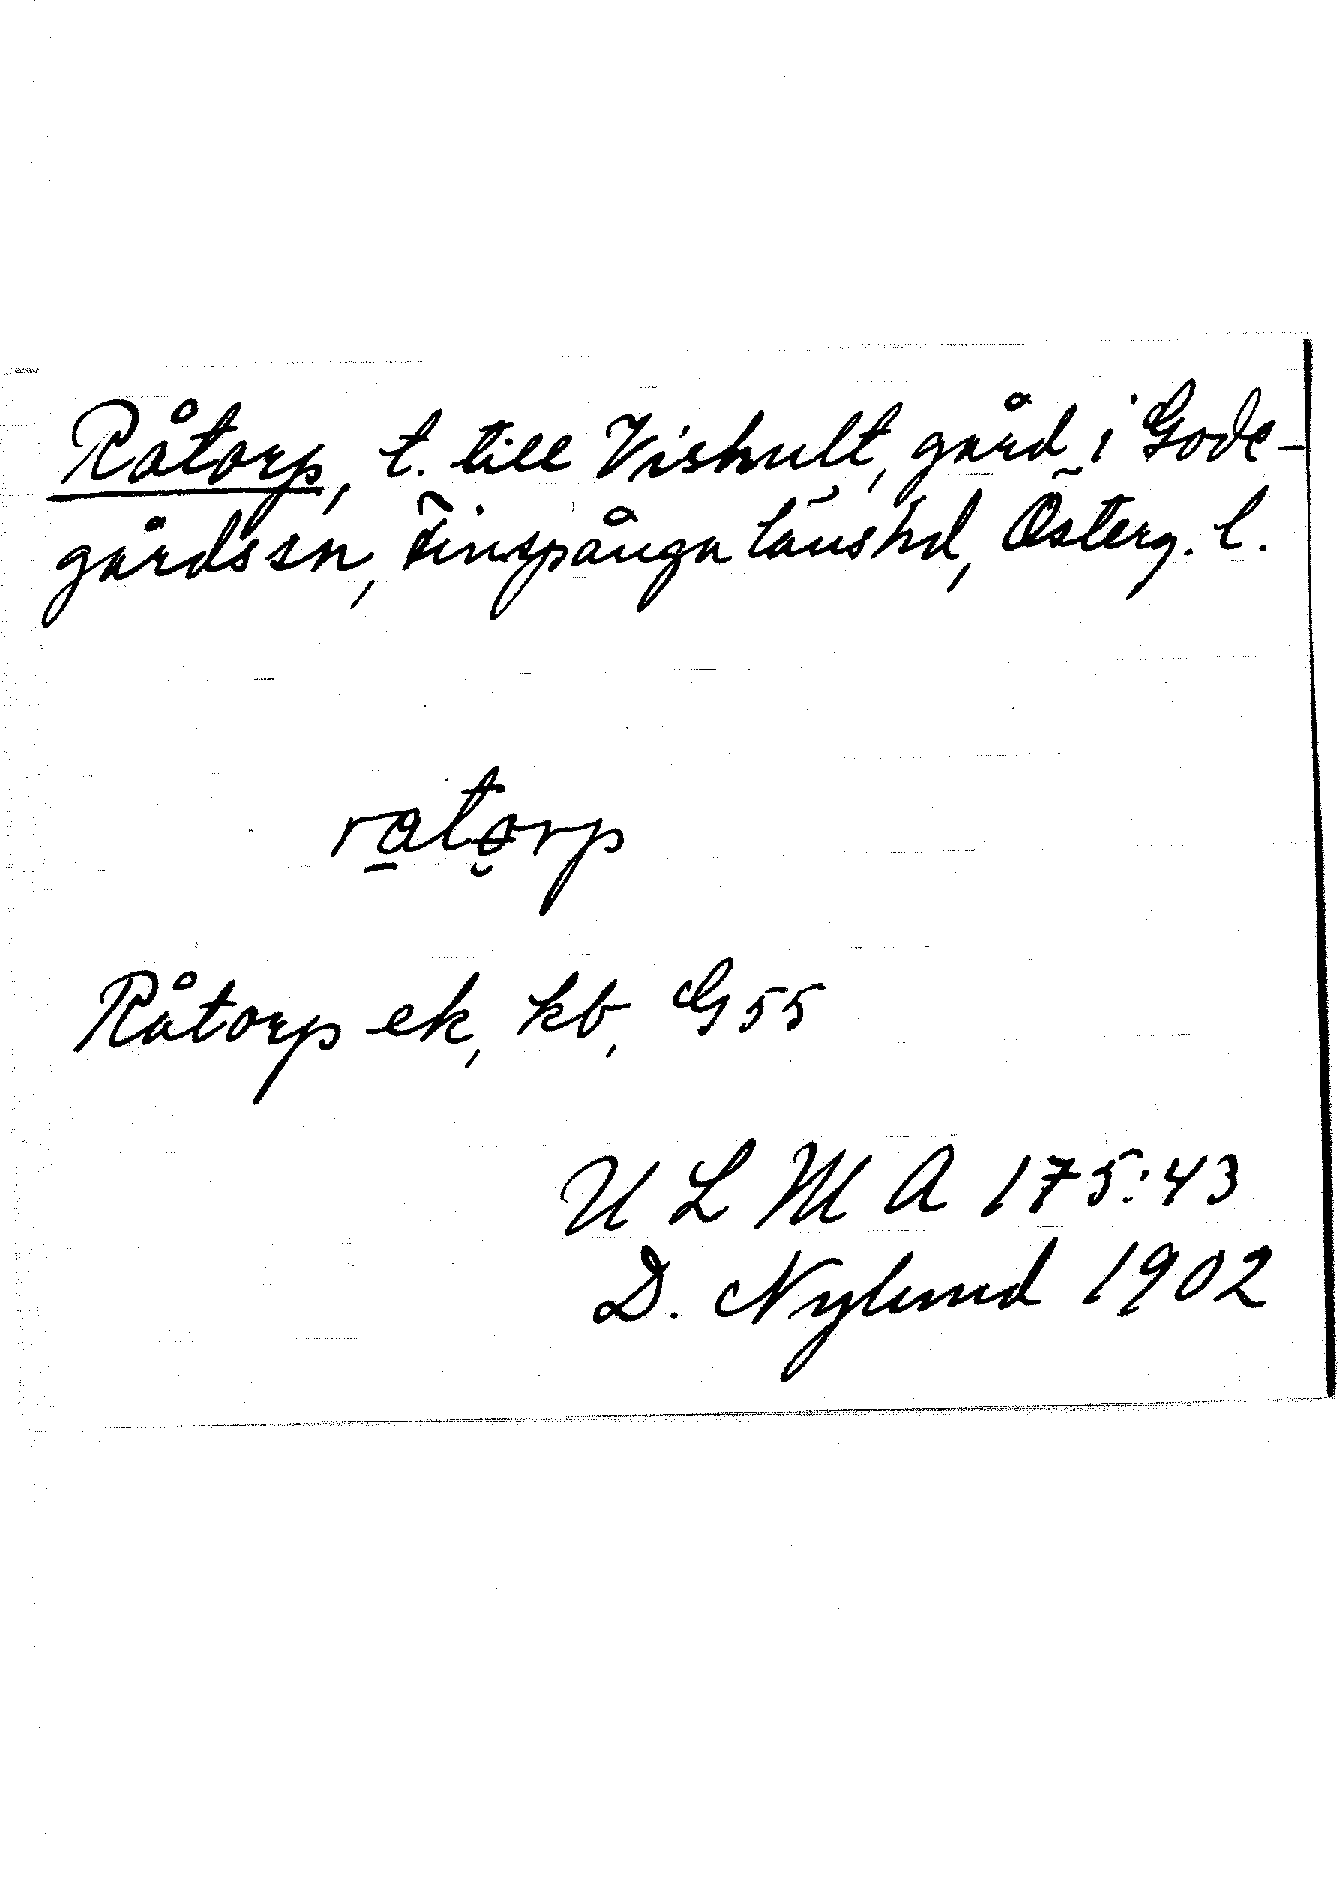 Råtorp, t. till Vishult, gård i Gode-
gårds sn, Finspånga länshd, Österg. l.
ratorp
Råtorp ek, kb, G 55
U L M A 175:43
D. Nylund 1902